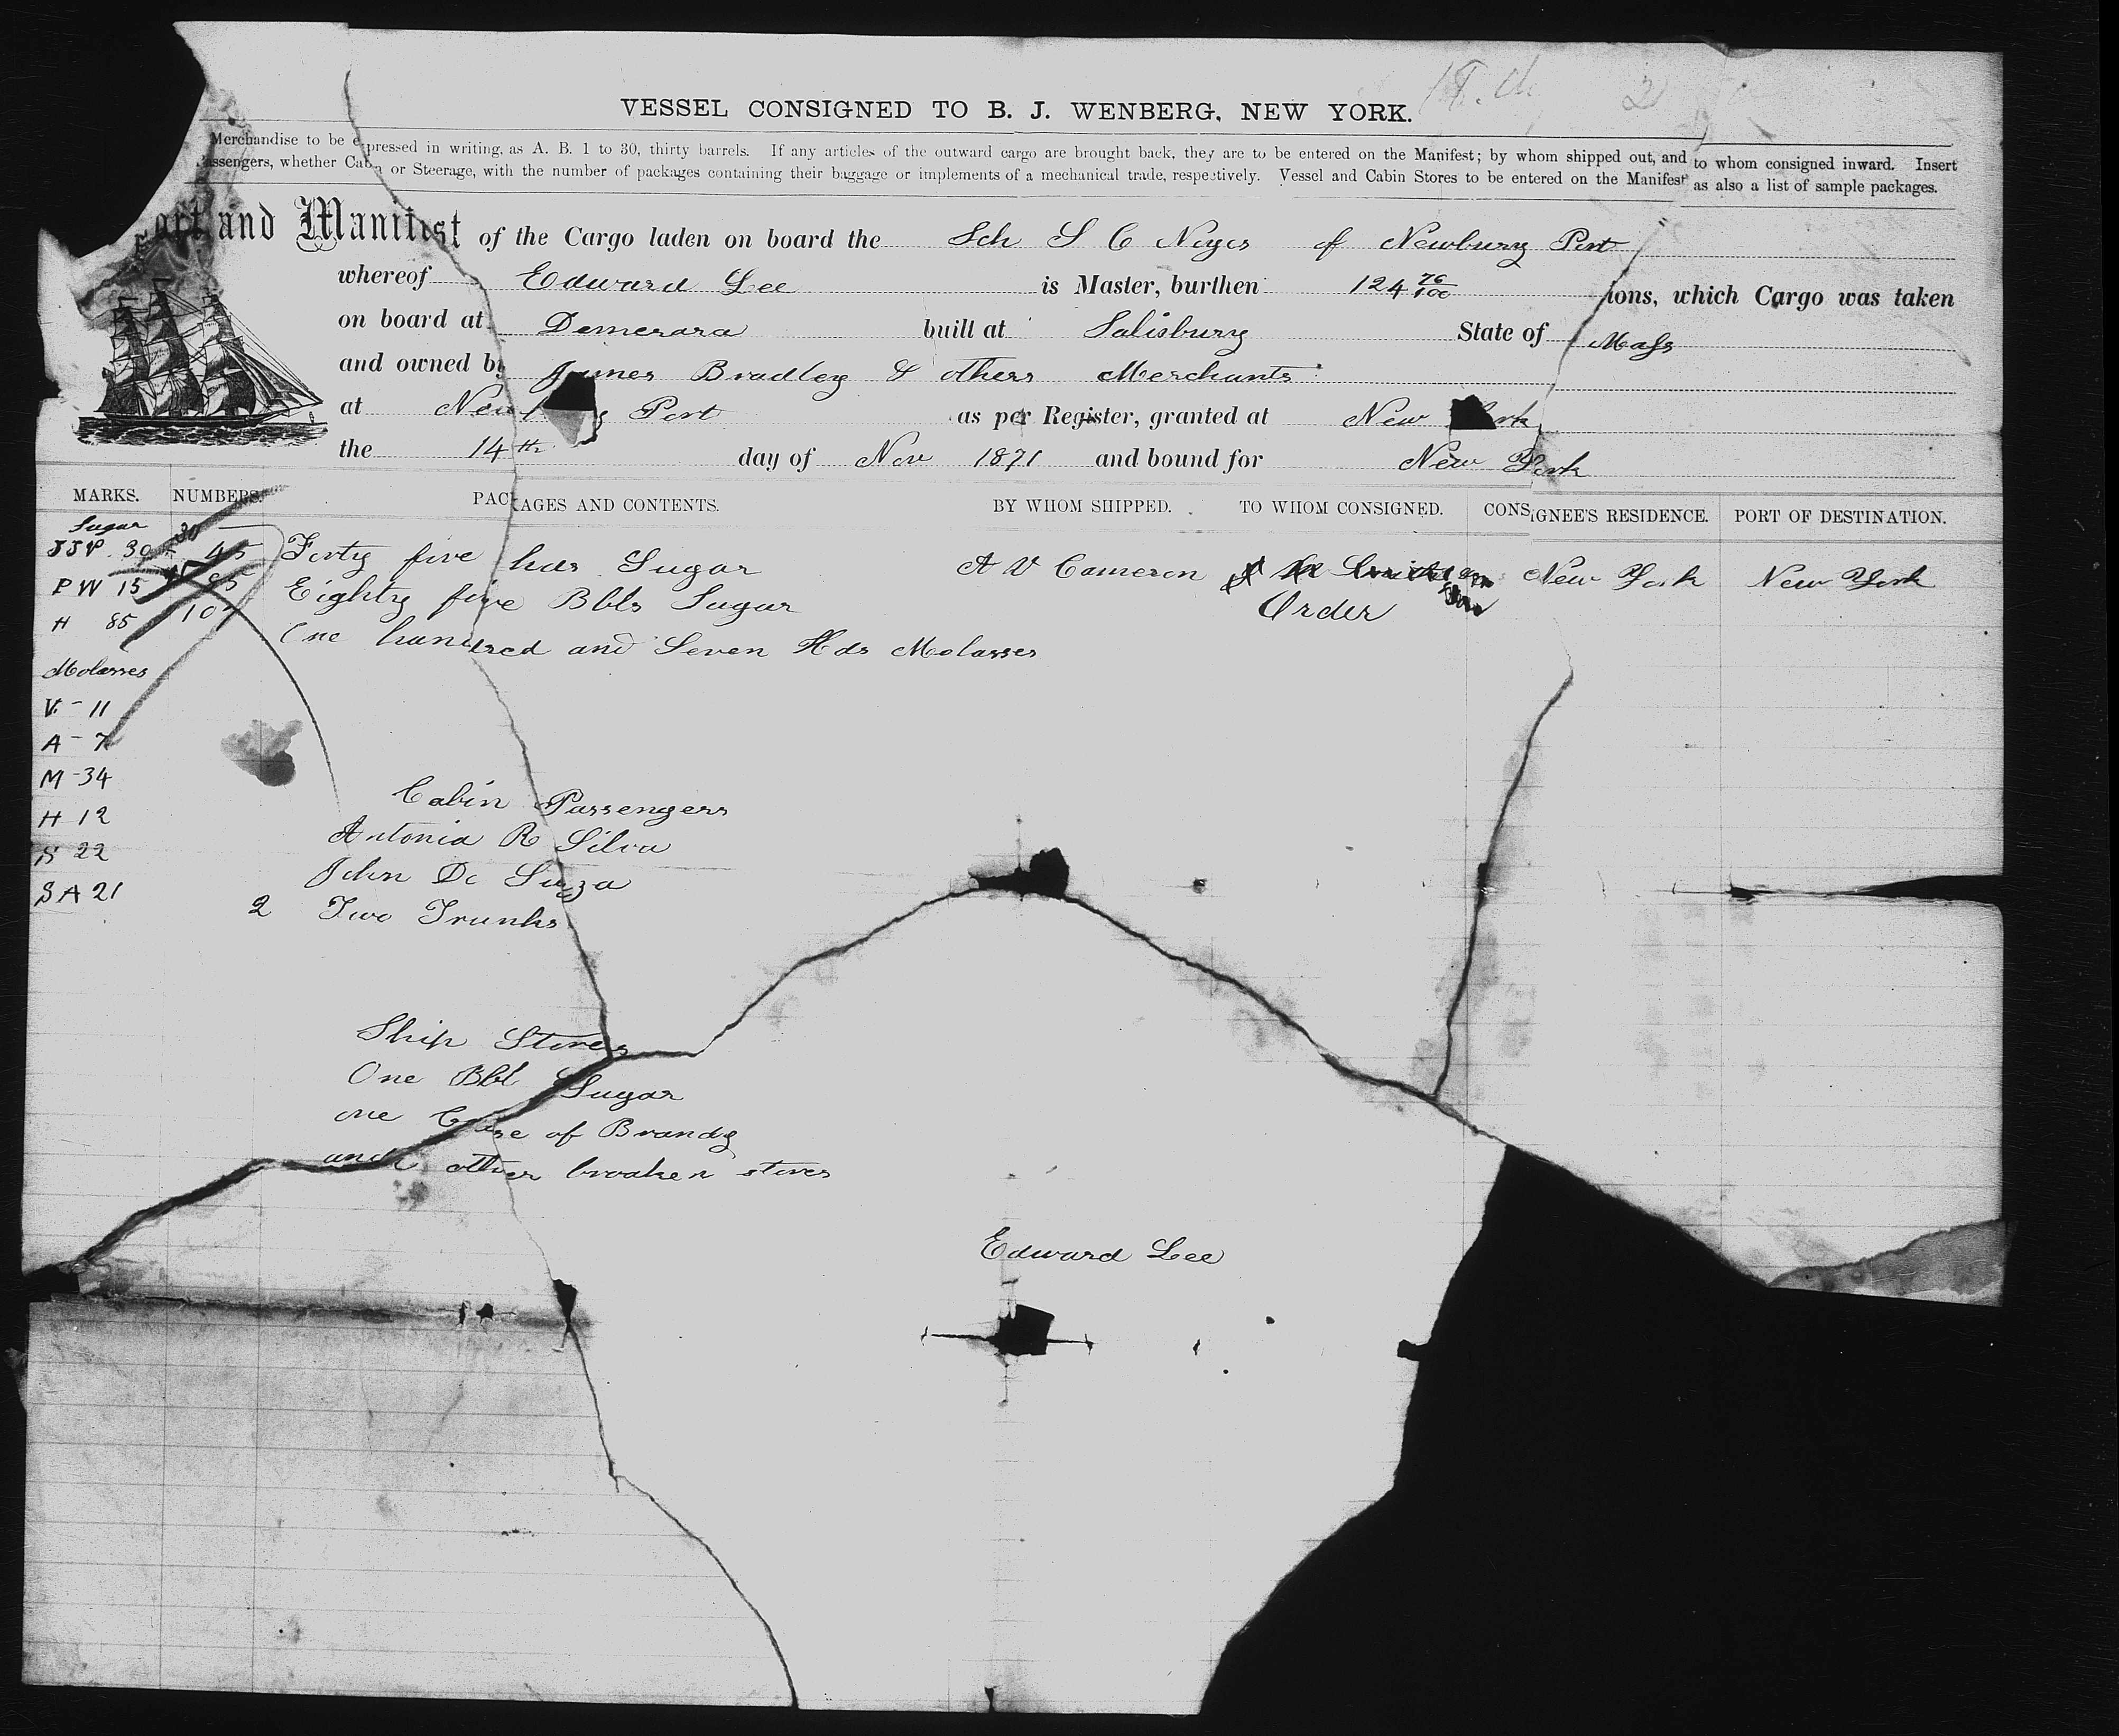 VESSEL CONSIGNED TO B. J. WENBERG, NEW YORK.
Merchandise to be expressed in writing, as A. B. 1 to 30, thirty barrels. If any articles of the outward cargo are brought back, they are to be entered on the Manifest; by whom shipped out, and to whom consigned inward. Insert
Passengers, whether Cabin or Steerage, with the number of packages containing their baggage or implements of a mechanical trade, respectively. Vessel and Cabin Stores to be entered on the Manifest as also a list of sample packages.
and Manifest of the Cargo laden on board the Sch S C Noyes of Newbury Port
whereof Edward Lee is Master, burthen 124 76/100 tons, which Cargo was taken
on board at Demerara built at Salisbury State of Mass
and owned by James Bradley & others Merchants
at Port as per Register, granted at New York
the 14th day of Nov 1871 and bound for New York
MARKS. NUMBERS. PACKAGES AND CONTENTS. BY WHOM SHIPPED. TO WHOM CONSIGNED. CONSIGNEE'S RESIDENCE. PORT OF DESTINATION.
Sugar
JJP. 30 45 Forty five hds Sugar A V Cameron New York New York
P W 15 85 Eighty five Bbls Sugar Order
H 85 107 One hundred and Seven Hds Molasses
Molasses
V - 11
A - 7
M - 34
H 12
S 22
S A 21
Cabin Passengers
Antonia R Silva
John De Souza
2 Two Trunks
Ship Stores
One Bbl Sugar
one Case of Brandy
and other broaken stores
Edward Lee